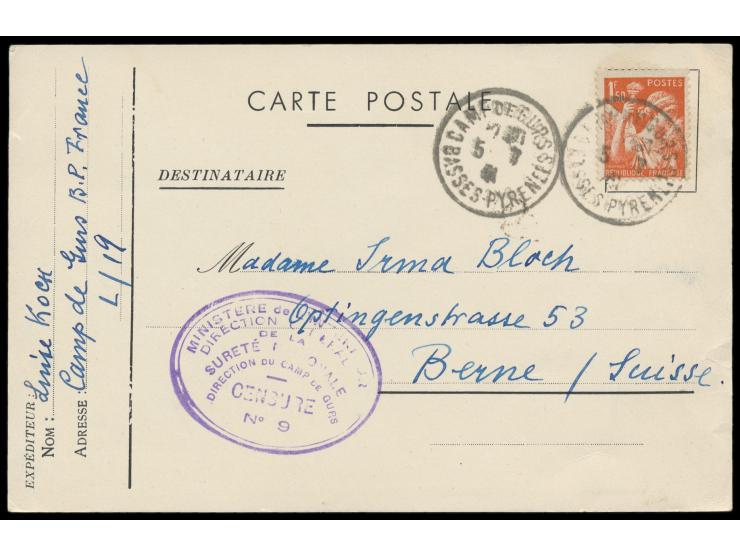 CARTE POSTALE
POSTES
1F
50
RÉPUBLIQUE FRANÇAISE
CAMP DE GURS
BASSES-PYRENEES
5
41
DESTINATAIRE
Madame Irma Bloch
Optingenstrasse 53
Berne / Suisse.
MINISTÈRE de
DIRECTION
DE LA
SURETÉ
DIRECTION DU CAMP DE GURS
CENSURE
N° 9
EXPÉDITEUR:
NOM: Luise Koch
ADRESSE: Camp de Gurs B.P. France
L/19